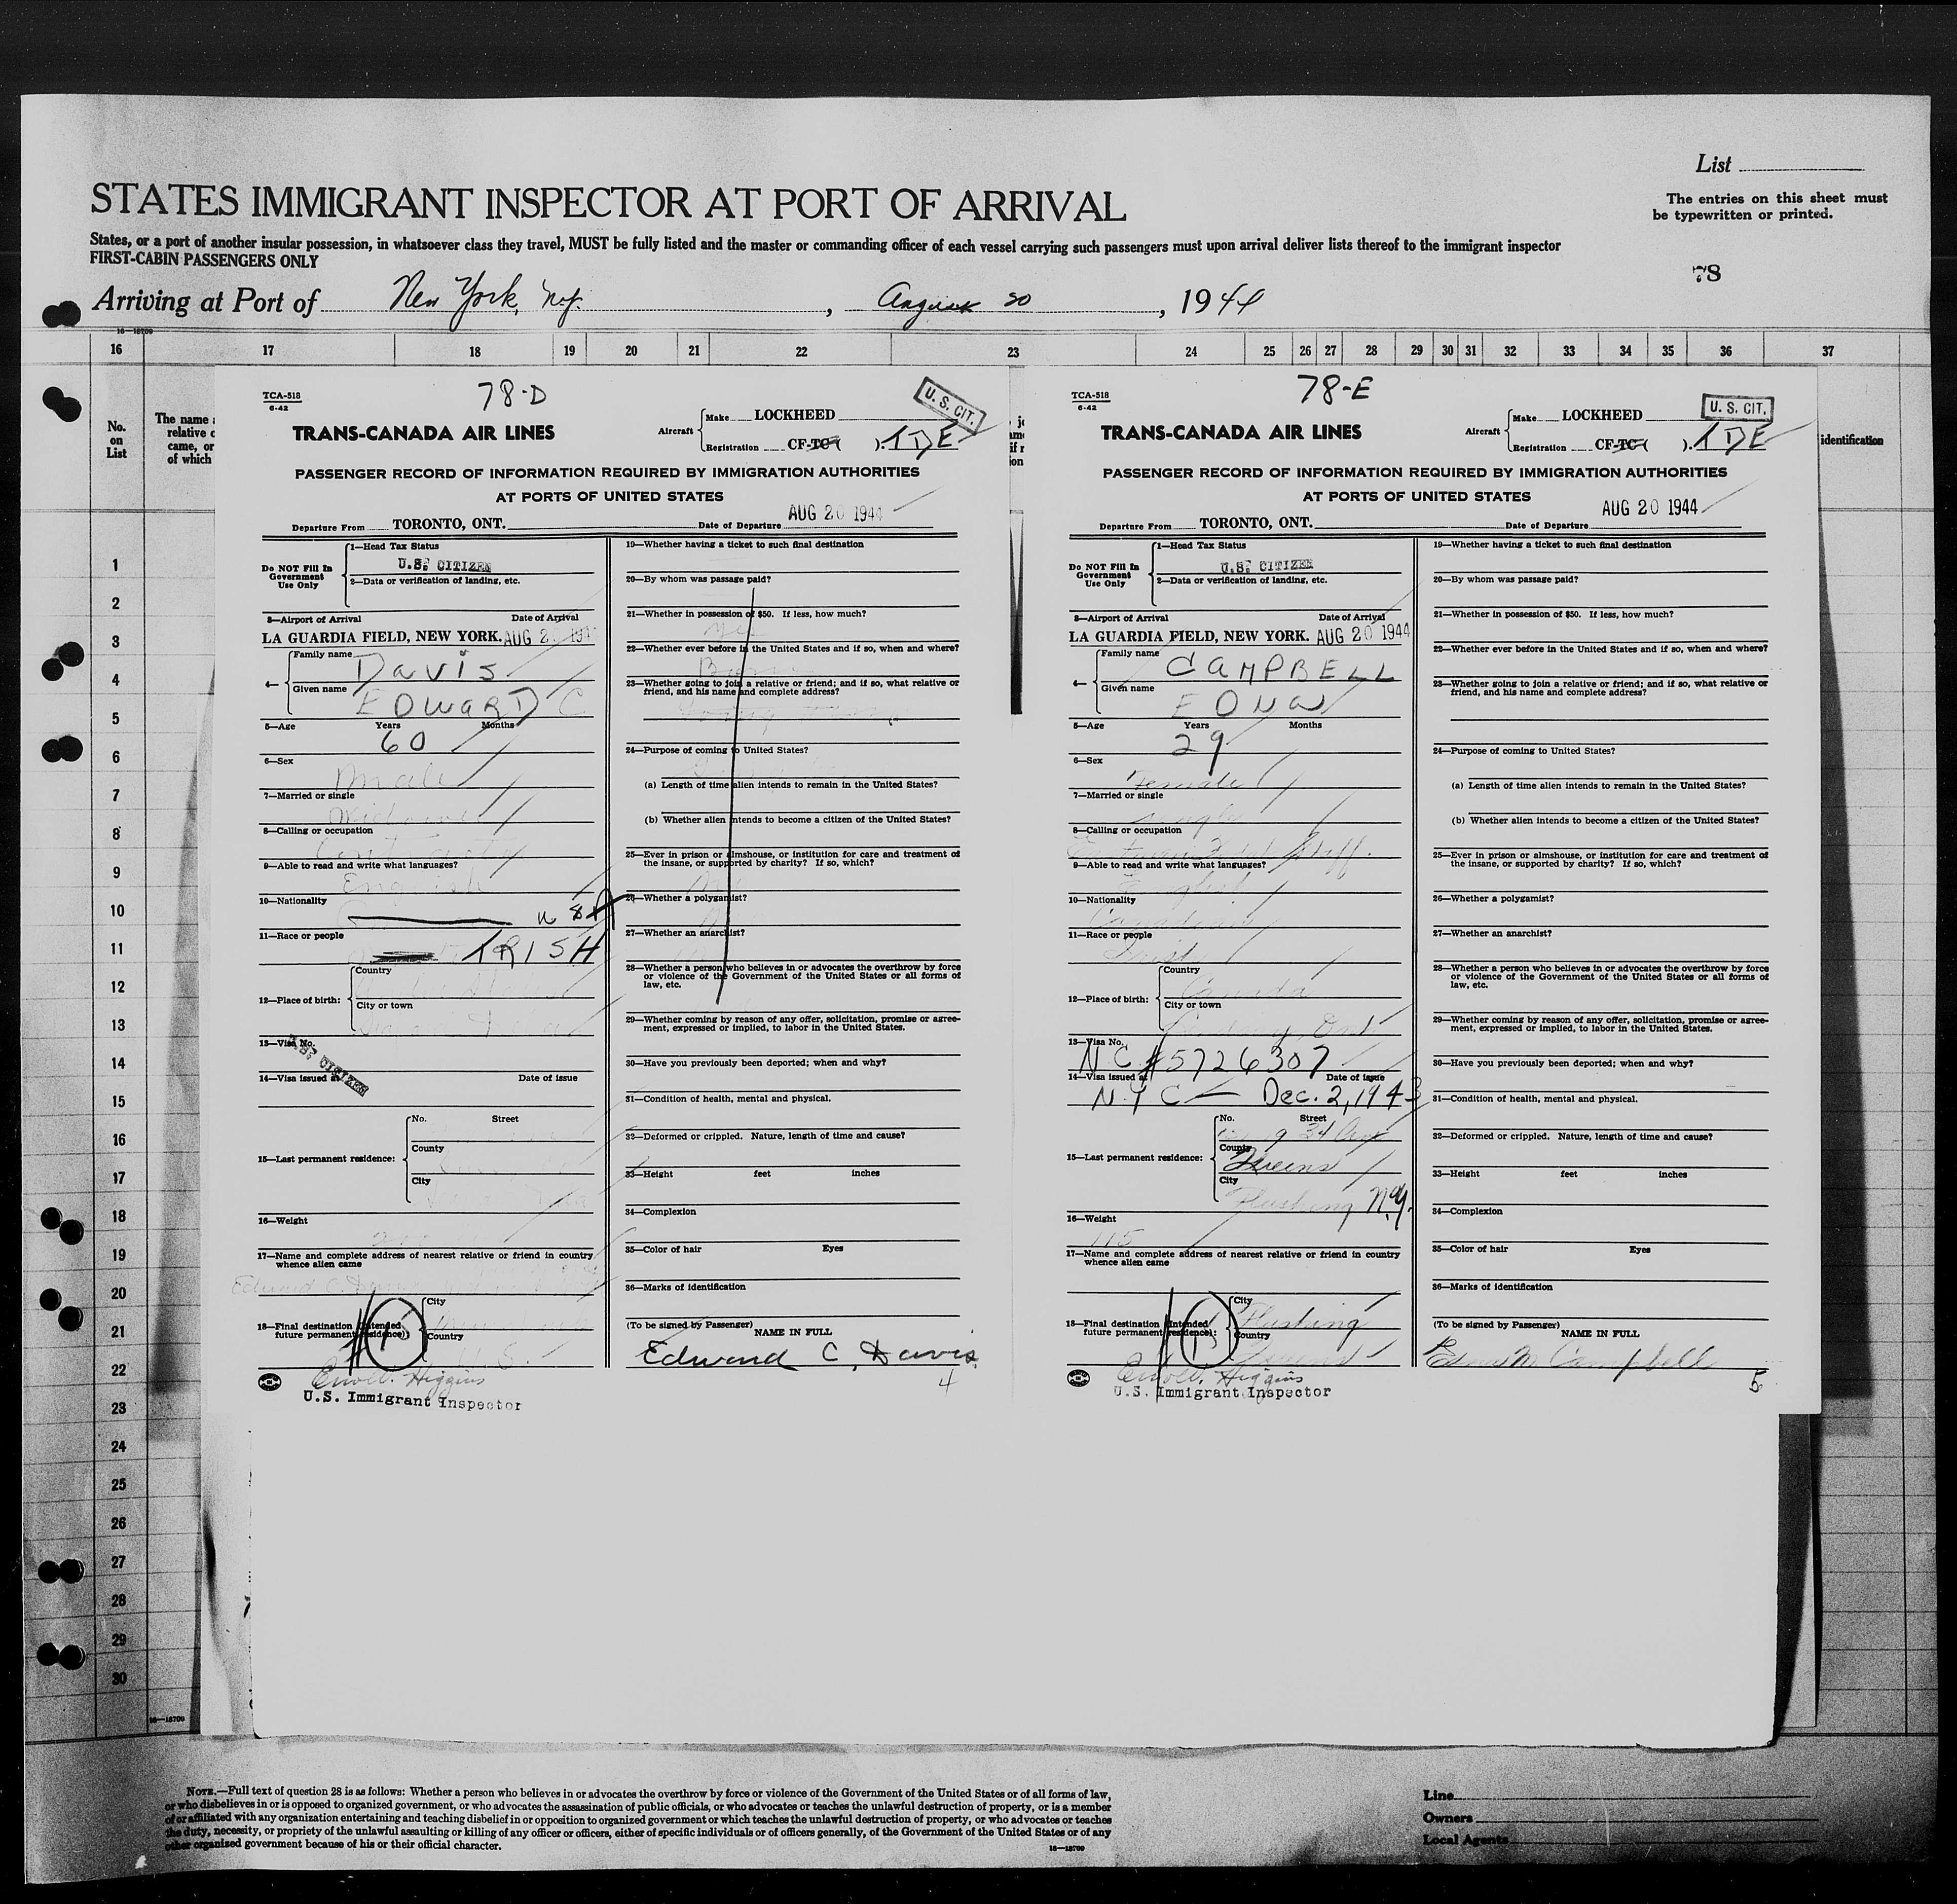 List
STATES IMMIGRANT INSPECTOR AT PORT OF ARRIVAL
The entries on this sheet must
be typewritten or printed.
States, or a port of another insular possession, in whatsoever class they travel, MUST be fully listed and the master or commanding officer of each vessel carrying such passengers must upon arrival deliver lists thereof to the immigrant inspector
FIRST-CABIN PASSENGERS ONLY
78
Arriving at Port of New York, N.Y. , August 20 , 1944
16—18709
16 17 18 19 20 21 22 23 24 25 26 27 28 29 30 31 32 33 34 35 36 37
No.
on
List
The name a
relative o
came, or
of which
identification
1
2
3
4
5
6
7
8
9
10
11
12
13
14
15
16
17
18
19
20
21
22
23
24
25
26
27
28
29
30
16—18709
TCA-518
6-42
78-D
U. S. CIT.
TRANS-CANADA AIR LINES
Aircraft
Make LOCKHEED
Registration CF-TC-( ). TDE
PASSENGER RECORD OF INFORMATION REQUIRED BY IMMIGRATION AUTHORITIES
AT PORTS OF UNITED STATES
Departure From TORONTO, ONT. Date of Departure AUG 20 1944
Do NOT Fill In
Government
Use Only
1—Head Tax Status
U.S. CITIZEN
2—Data or verification of landing, etc.
3—Airport of Arrival Date of Arrival
LA GUARDIA FIELD, NEW YORK. AUG 20 194
4—
Family name DAVIS
Given name EDWARD C
5—Age Years Months
60
6—Sex
Male
7—Married or single
8—Calling or occupation
9—Able to read and write what languages?
English
10—Nationality
USA
11—Race or people
IRISH
12—Place of birth:
Country
City or town
13—Visa No.
U.S. CITIZEN
14—Visa issued at Date of issue
15—Last permanent residence:
No. Street
County
City
16—Weight
17—Name and complete address of nearest relative or friend in country
whence alien came
Edward C.
18—Final destination (Intended
future permanent residence):
City
Country
U.S.
Higgins
U.S. Immigrant Inspector
19—Whether having a ticket to such final destination
20—By whom was passage paid?
21—Whether in possession of $50. If less, how much?
yes
22—Whether ever before in the United States and if so, when and where?
23—Whether going to join a relative or friend; and if so, what relative or
friend, and his name and complete address?
24—Purpose of coming to United States?
(a) Length of time alien intends to remain in the United States?
(b) Whether alien intends to become a citizen of the United States?
25—Ever in prison or almshouse, or institution for care and treatment of
the insane, or supported by charity? If so, which?
26—Whether a polygamist?
27—Whether an anarchist?
28—Whether a person who believes in or advocates the overthrow by force
or violence of the Government of the United States or all forms of
law, etc.
29—Whether coming by reason of any offer, solicitation, promise or agree-
ment, expressed or implied, to labor in the United States.
30—Have you previously been deported; when and why?
31—Condition of health, mental and physical.
32—Deformed or crippled. Nature, length of time and cause?
33—Height feet inches
34—Complexion
35—Color of hair Eyes
36—Marks of identification
(To be signed by Passenger)
NAME IN FULL
Edward C. Davis
4
TCA-518
6-42
78-E
U. S. CIT.
TRANS-CANADA AIR LINES
Aircraft
Make LOCKHEED
Registration CF-TC-( ). TDE
PASSENGER RECORD OF INFORMATION REQUIRED BY IMMIGRATION AUTHORITIES
AT PORTS OF UNITED STATES
Departure From TORONTO, ONT. Date of Departure AUG 20 1944
Do NOT Fill In
Government
Use Only
1—Head Tax Status
U.S. CITIZEN
2—Data or verification of landing, etc.
3—Airport of Arrival Date of Arrival
LA GUARDIA FIELD, NEW YORK. AUG 20 1944
4—
Family name CAMPBELL
Given name EDNA
5—Age Years Months
29
6—Sex
Female
7—Married or single
Single
8—Calling or occupation
Staff.
9—Able to read and write what languages?
English
10—Nationality
Canadian
11—Race or people
Irish
12—Place of birth:
Country
Canada
City or town
Ont
13—Visa No.
NC #5726307
14—Visa issued at Date of issue
N.Y.C — Dec. 2, 1943
15—Last permanent residence:
No. Street
34 Ave
County
Queens
City
Flushing N.Y.
16—Weight
115
17—Name and complete address of nearest relative or friend in country
whence alien came
18—Final destination (Intended
future permanent residence):
City
Flushing
Country
Higgins
U.S. Immigrant Inspector
19—Whether having a ticket to such final destination
20—By whom was passage paid?
21—Whether in possession of $50. If less, how much?
22—Whether ever before in the United States and if so, when and where?
23—Whether going to join a relative or friend; and if so, what relative or
friend, and his name and complete address?
24—Purpose of coming to United States?
(a) Length of time alien intends to remain in the United States?
(b) Whether alien intends to become a citizen of the United States?
25—Ever in prison or almshouse, or institution for care and treatment of
the insane, or supported by charity? If so, which?
26—Whether a polygamist?
27—Whether an anarchist?
28—Whether a person who believes in or advocates the overthrow by force
or violence of the Government of the United States or all forms of
law, etc.
29—Whether coming by reason of any offer, solicitation, promise or agree-
ment, expressed or implied, to labor in the United States.
30—Have you previously been deported; when and why?
31—Condition of health, mental and physical.
32—Deformed or crippled. Nature, length of time and cause?
33—Height feet inches
34—Complexion
35—Color of hair Eyes
36—Marks of identification
(To be signed by Passenger)
NAME IN FULL
Edna M. Campbell
5
NOTE.—Full text of question 28 is as follows: Whether a person who believes in or advocates the overthrow by force or violence of the Government of the United States or of all forms of law,
or who disbelieves in or is opposed to organized government, or who advocates the assassination of public officials, or who advocates or teaches the unlawful destruction of property, or is a member
of or affiliated with any organization entertaining and teaching disbelief in or opposition to organized government or which teaches the unlawful destruction of property, or who advocates or teaches
the duty, necessity, or propriety of the unlawful assaulting or killing of any officer or officers, either of specific individuals or of officers generally, of the Government of the United States or of any
other organized government because of his or their official character.
16—18709
Line
Owners
Local Agents